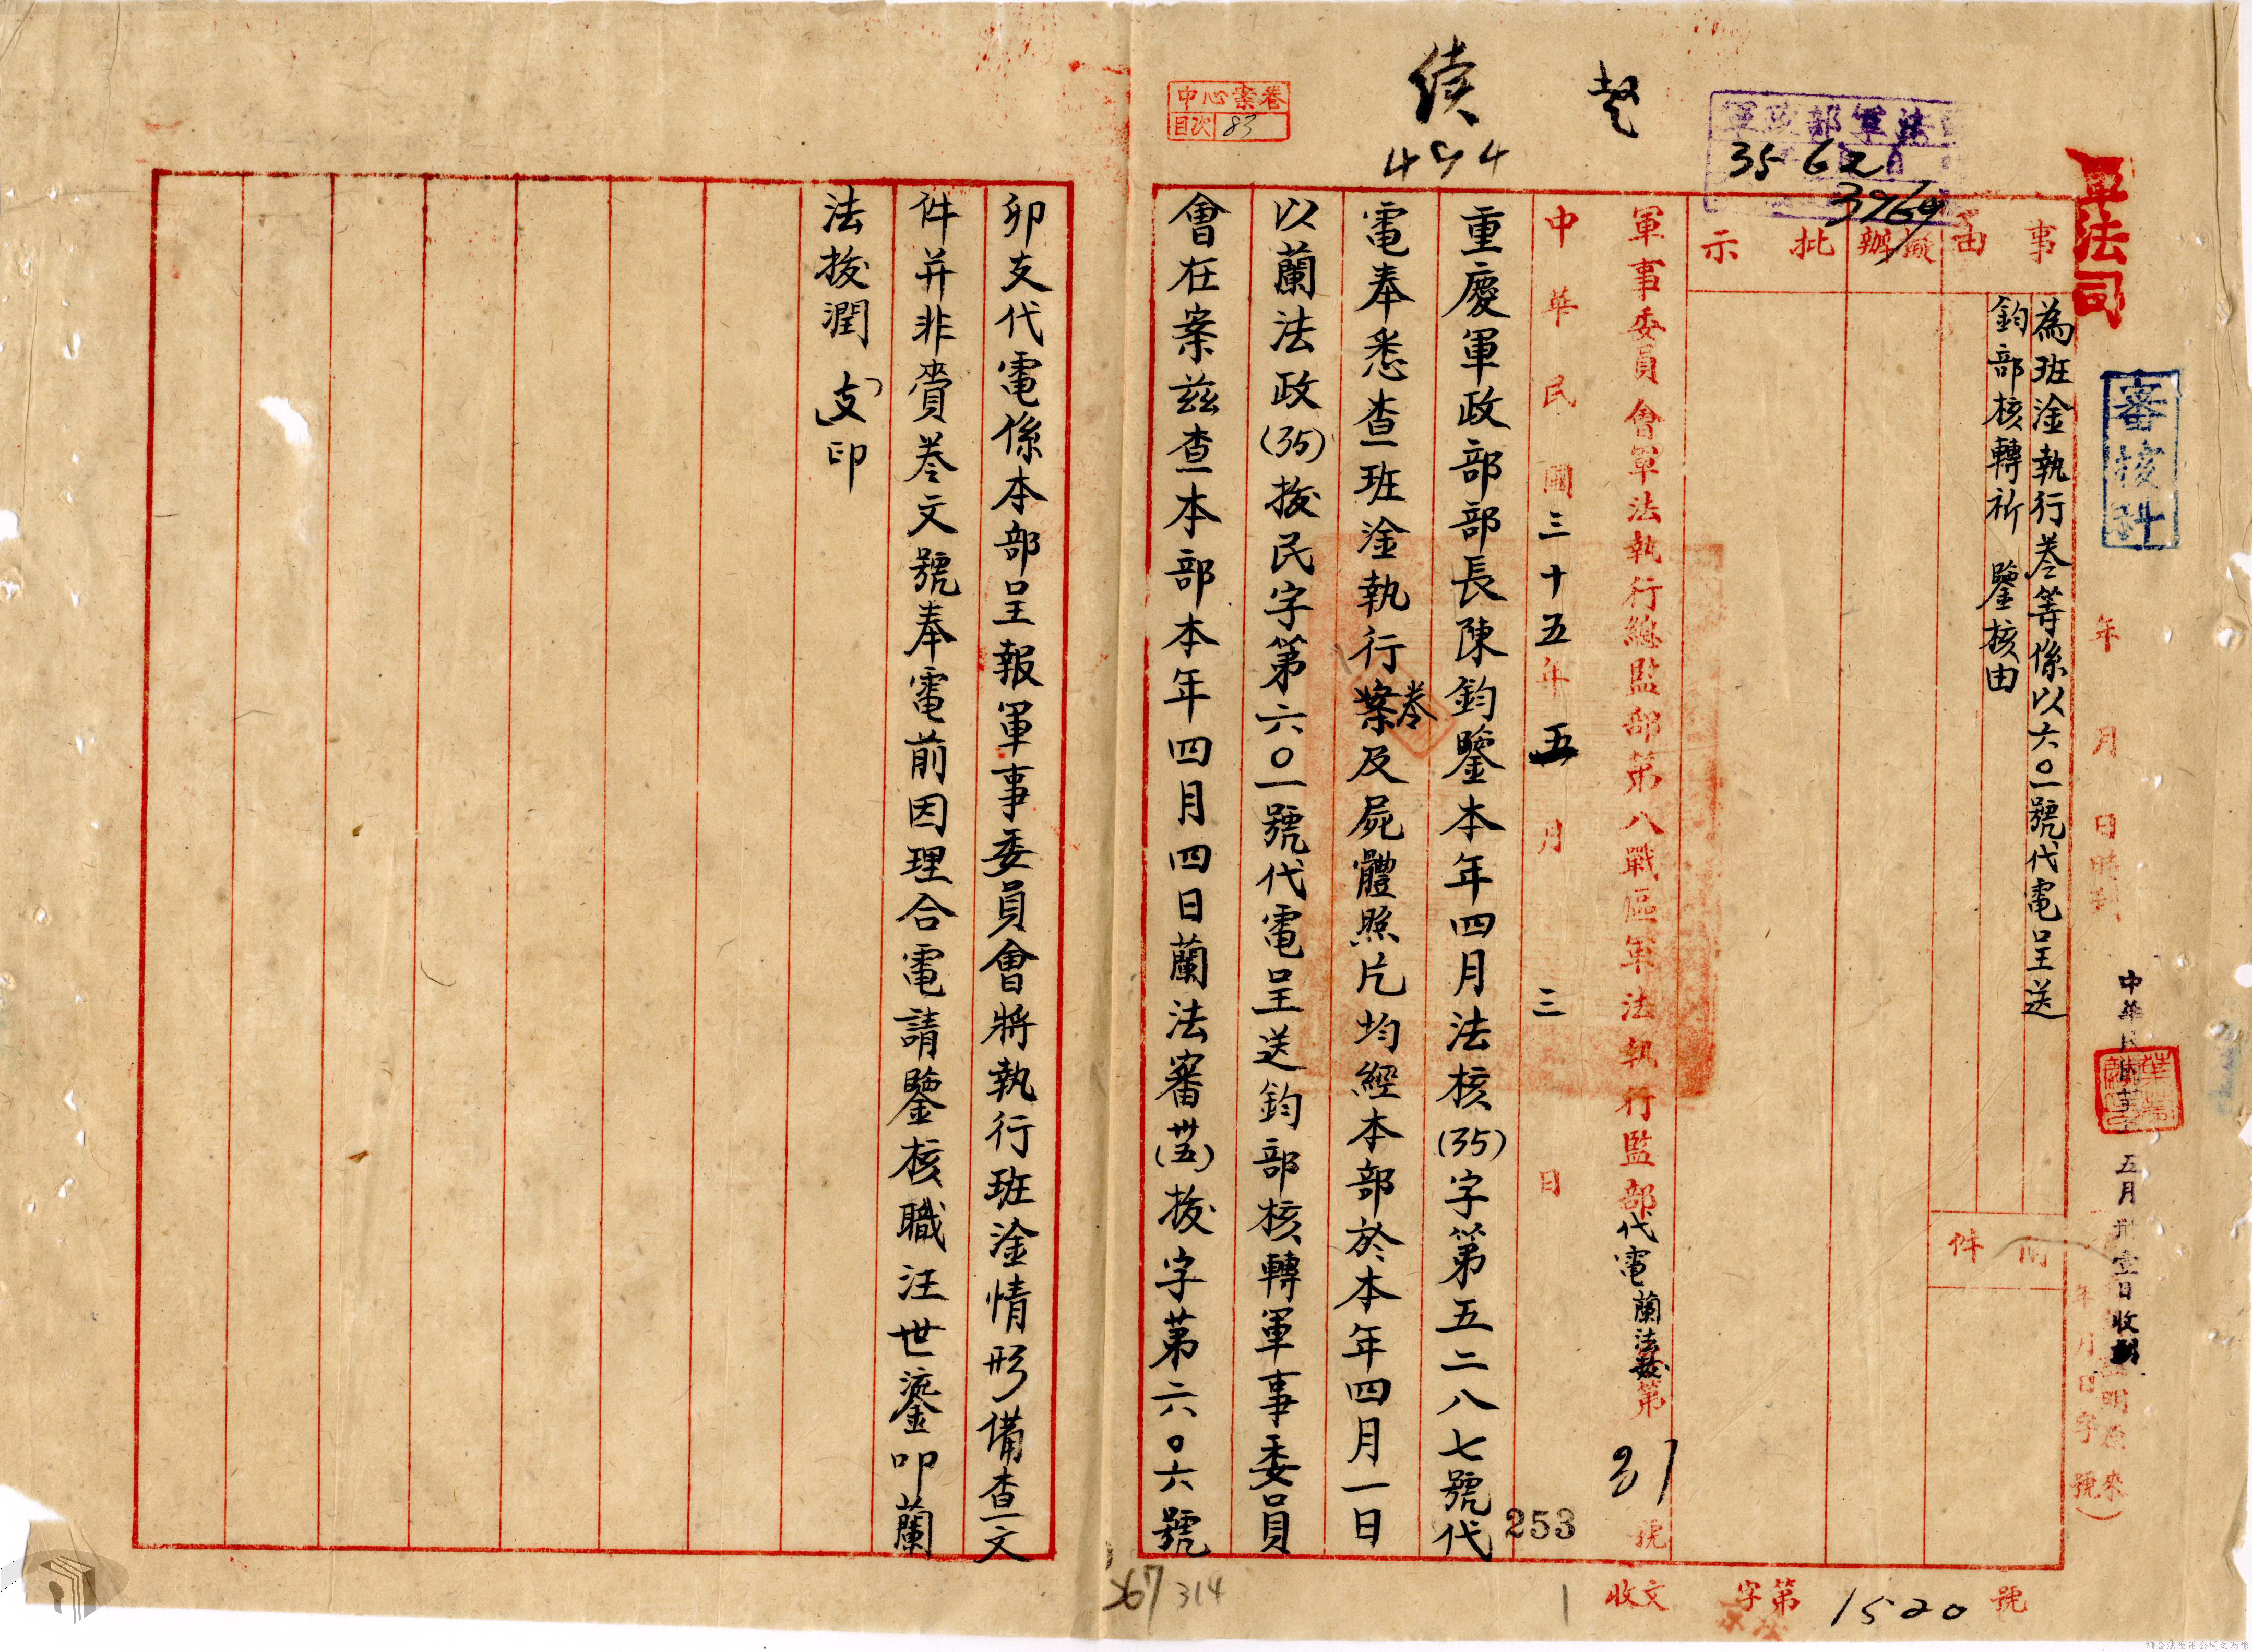 軍法司
審核科
年 月 日 時到
中華民國 五月卅壹日收到
事由
為班淦執行卷等係以六〇一號代電呈送
鈞部核轉祈 鑒核由
附件
擬辦
批示
軍政部軍法
35 62
3969
軍事委員會軍法執行總監部第八戰區軍法執行監部代電蘭法 第 31 號
中華民國三十五年五月三日
253
重慶軍政部部長陳鈞鑒本年四月法核(35)字第五二八七號代
電奉悉查班淦執行案卷及屍體照片均經本部於本年四月一日
以蘭法政(35)拔民字第六〇一號代電呈送鈞部核轉軍事委員
會在案茲查本部本年四月四日蘭法審(卅五)拔字第六〇六號
卯支代電係本部呈報軍事委員會將執行班淦情形備查文
件并非賷卷文號奉電前因理合電請鑒核職汪世鎏叩蘭
法拔潤(支)印
中心案卷
目次 83
續
494
收文 字第 1520 號
1
267 314
請合法使用公開之影像